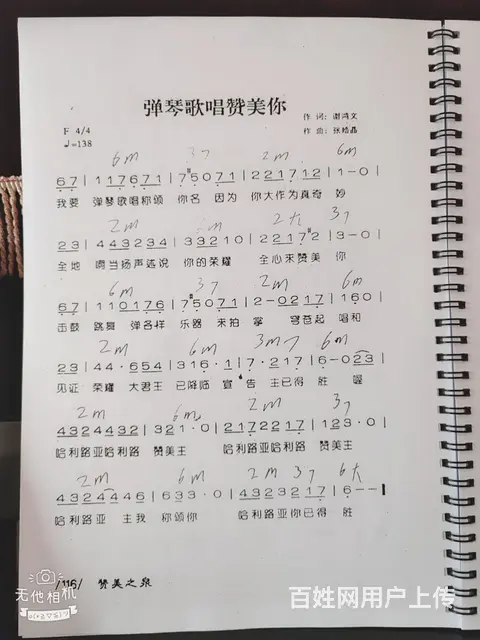 弹琴歌唱赞美你
作词:谢鸿文
F 4/4
作曲:张
♩=138
6m 37 2m 6m
67|117671|7#5071|221712|1-0|
我要 弹琴歌唱称颂 你名 因为 你大作为真奇妙
2m 6m 2大 37
23|443234|33210|2217#2|3-0|
全地 当扬声述说 你的荣耀 全心来赞美 你
6m 37 2m 6m
67|110176|7#5071|2-0217|160|
击鼓 跳舞 弹各样 乐器 来拍掌 穹苍起 唱和
2m 6m 3m7 6m
23|44·654|316·1|7·217|6-023|
见证 荣耀 大君王 已降临 宣告 主已得胜 喔
2m 6m 2m 37
4324432|321·0|2172217|123·0|
哈利路亚哈利路 赞美主 哈利路亚哈利路 赞美主
2m 6m 2m 37 6大
4324446|633·0|4323217|6--|
哈利路亚 主我 称颂你 哈利路亚你已得 胜
/116/ 赞美之泉
无他相机
百姓网用户上传